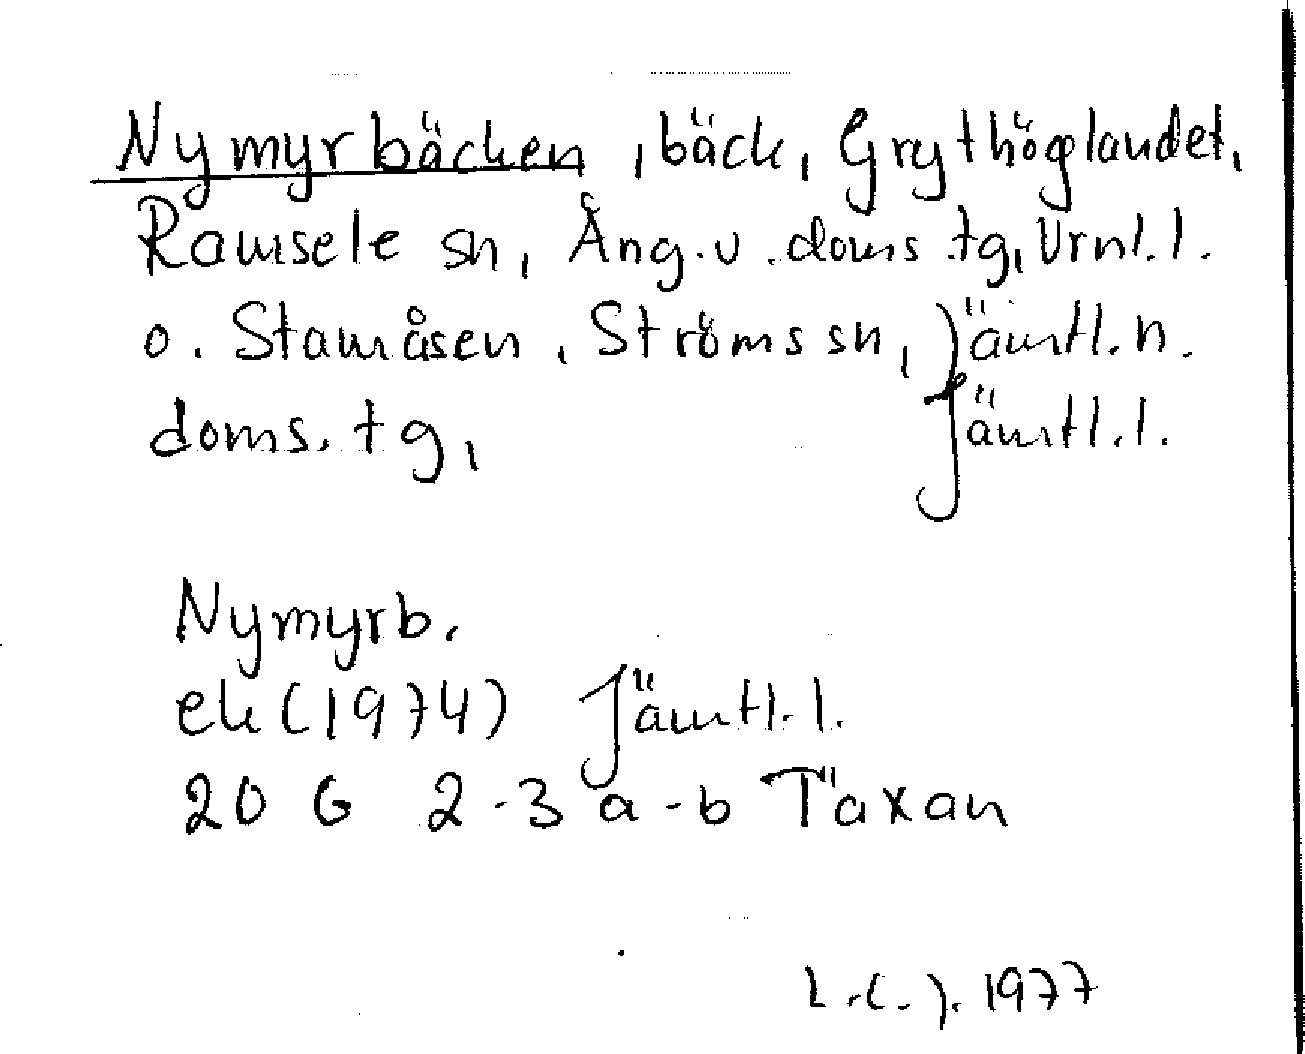 Nymyrbäcken, bäck, Grythöglandet,
Ramsele sn, Ång. v. doms.tg, Vrnl.l.
o. Stamåsen, Ströms sn, Jämtl. n.
doms. tg, Jämtl. l.
Nymyrb.
ek (1974) Jämtl. l.
20 G 2-3 a-b Täxan
L.C.J. 1977